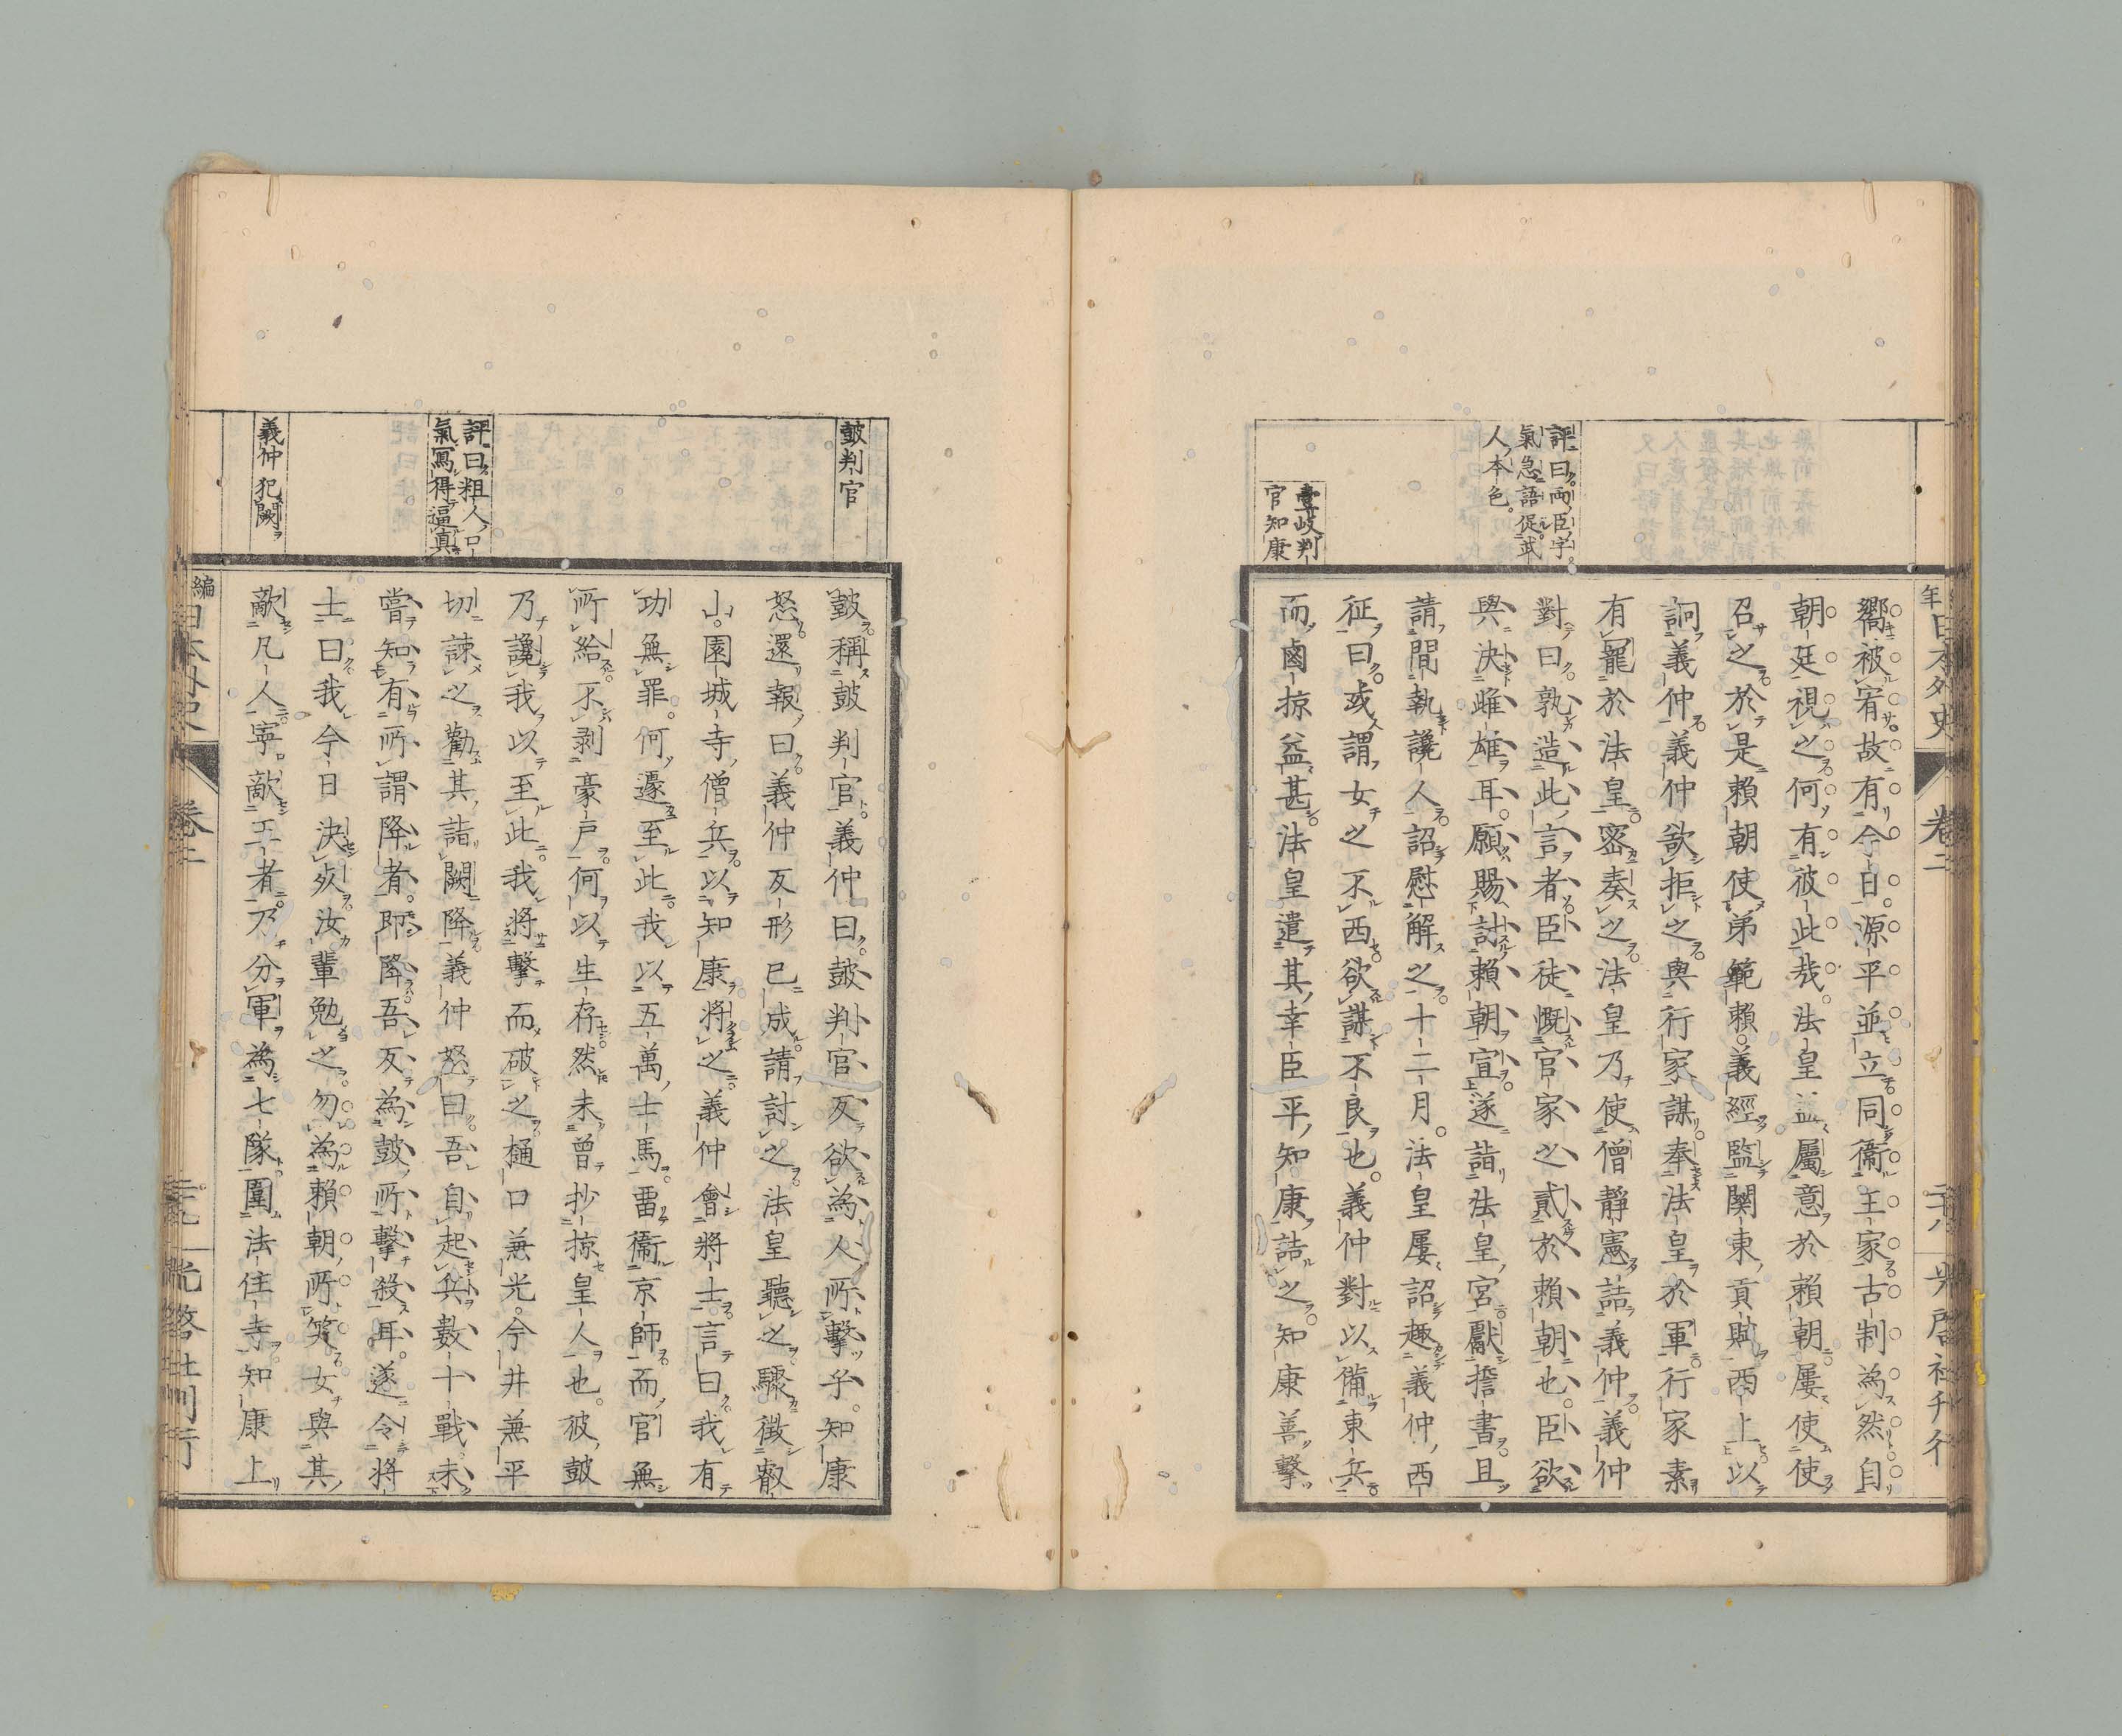 嚮被宥故有今日源平並立同衞王家古制為然自
朝廷視之何有彼此哉法皇益屬意於賴朝屢使使
召之於是賴朝使弟範賴義經監關東貢賦西上以
詗義仲義仲欲拒之與行家謀奉法皇於軍行家素
有寵於法皇密奏之法皇乃使僧靜憲詰義仲義仲
對曰孰造此言者臣徒慨官家之貳於賴朝也臣欲
與決雌雄耳願賜討賴朝宣遂詣法皇宮獻誓書且
請間執讒人詔慰解之十二月法皇屢詔趣義仲西
征曰或謂女之不西欲謀不良也義仲對以備東兵
而鹵掠益甚法皇遣其幸臣平知康詰之知康善擊
評曰兩臣字
氣急語促武
人本色
壹岐判
官知康
卷二
鼓稱鼓判官義仲曰鼓判官反欲為人所擊乎知康
怒還報曰義仲反形已成請討之法皇聽之驟徵叡
山園城寺僧兵以知康將之義仲會將士言曰我有
功無罪何遽至此我以五萬士馬畱衞京師而官無
所給不剥豪戶何以生存然未曾抄掠皇人也彼鼓
乃讒我以至此我將擊而破之樋口兼光今井兼平
切諫之勸其詣闕降義仲怒曰吾自起兵數十戰未
嘗知有所謂降者即降吾反為鼓所擊殺耳遂令將
士曰我今日決死汝輩勉之勿為賴朝所笑女與其
敵凡人寧敵王者乃分軍為七隊圍法住寺知康上
鼓判官
評曰粗人口
氣寫得逼真
義仲犯闕